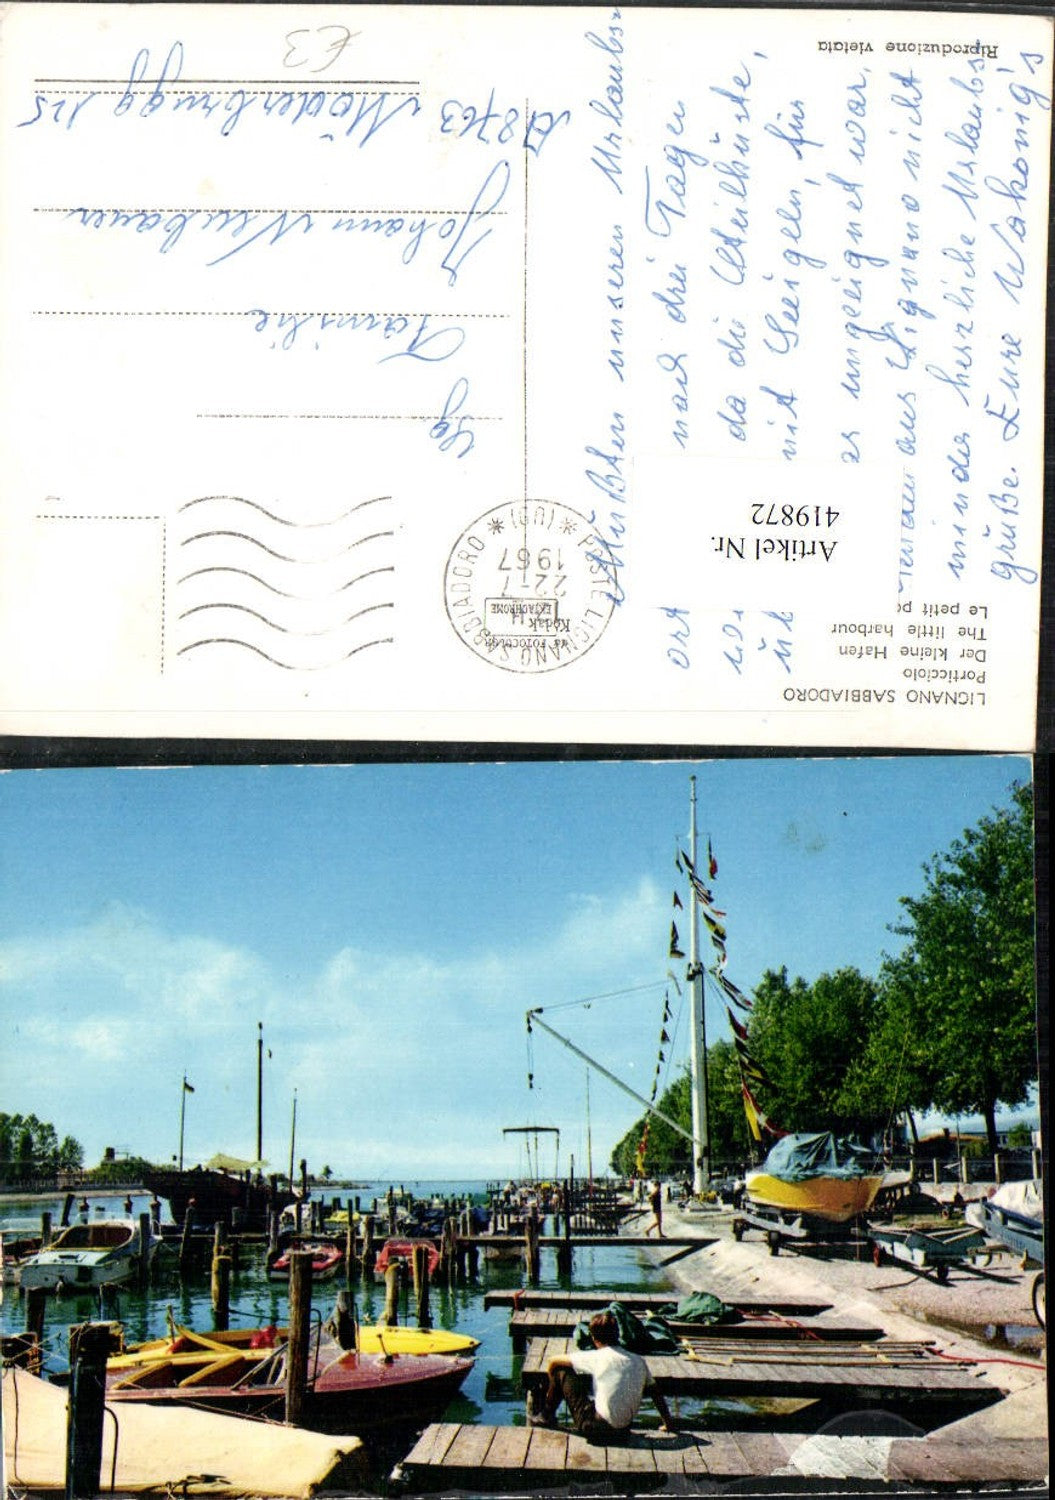 LIGNANO SABBIADORO
Porticciolo
Der kleine Hafen
The little harbour
Le petit
Mußten unseren Urlaubs-
ort nach drei Tagen
da die Steilküste,
mit Seeigeln, für
ungeeignet war.
aus Lignano nicht
minder herzliche Urlaubs-
grüße. Eure Wakonig's
Riproduzione vietata
Artikel Nr.
419872
POSTE LIGNANO SABBIADORO
(UD)
22-7
1967
FOTOCOLOR
Kodak
EKTACHROME
Fam
Familie
Johann Neubauer
A 8763 Möderbrugg 125
€3